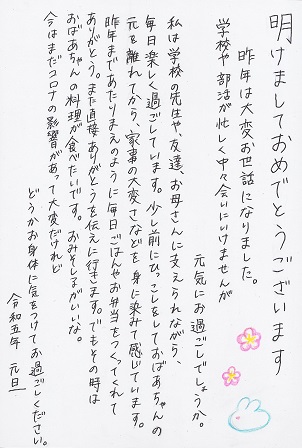 明けましておめでとうございます
昨年は大変お世話になりました。
学校や部活が忙しく中々会いにいけませんが
元気にお過ごしでしょうか。
私は学校の先生や、友達、お母さんに支えられながら、
毎日楽しく過ごしています。少し前にひっこしをしておばあちゃんの
元を離れてから、家事の大変さなどを身に染みて感じています。
昨年まであたりまえのように毎日ごはんやお弁当をつくってくれて
ありがとう。また直接ありがとうを伝えに行きます。でもその時は
おばあちゃんの料理が食べたいです。おみそしるがいいな。
今はまだコロナの影響があって大変だけれど
どうかお身体に気をつけてお過ごしください。
令和五年 元旦